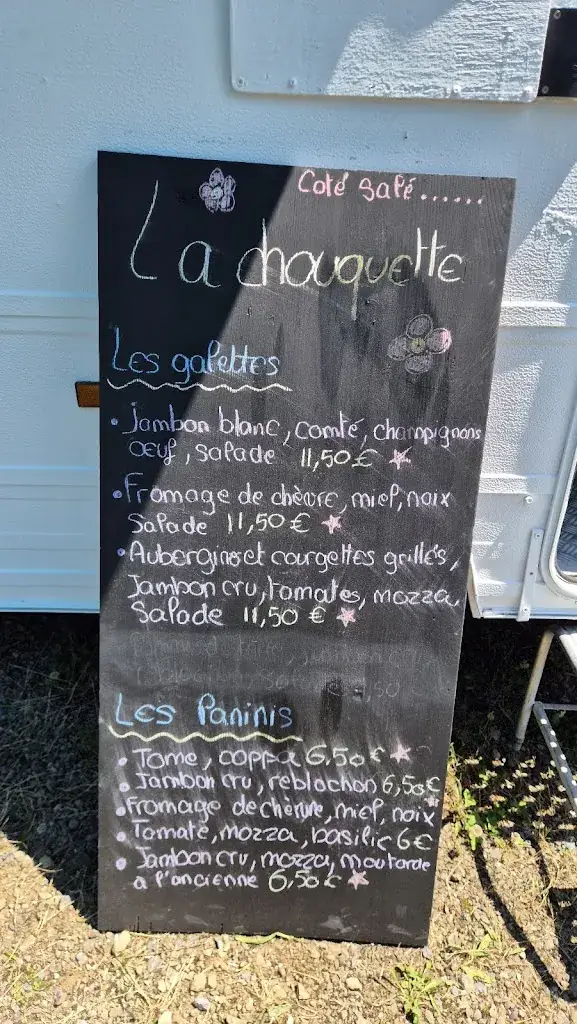 Coté Salé......
La chouquette
Les galettes
• Jambon blanc, comté, champignons
oeuf, salade 11,50€
• Fromage de chèvre, miel, noix
Salade 11,50€
• Aubergines et courgettes grillés,
Jambon cru, tomates, mozza,
Salade 11,50€
Les Paninis
• Tome, coppa 6,50€
• Jambon cru, reblochon 6,50€
• Fromage de chèvre, miel, noix
• Tomate, mozza, basilic 6€
• Jambon cru, mozza, moutarde
à l'ancienne 6,50€